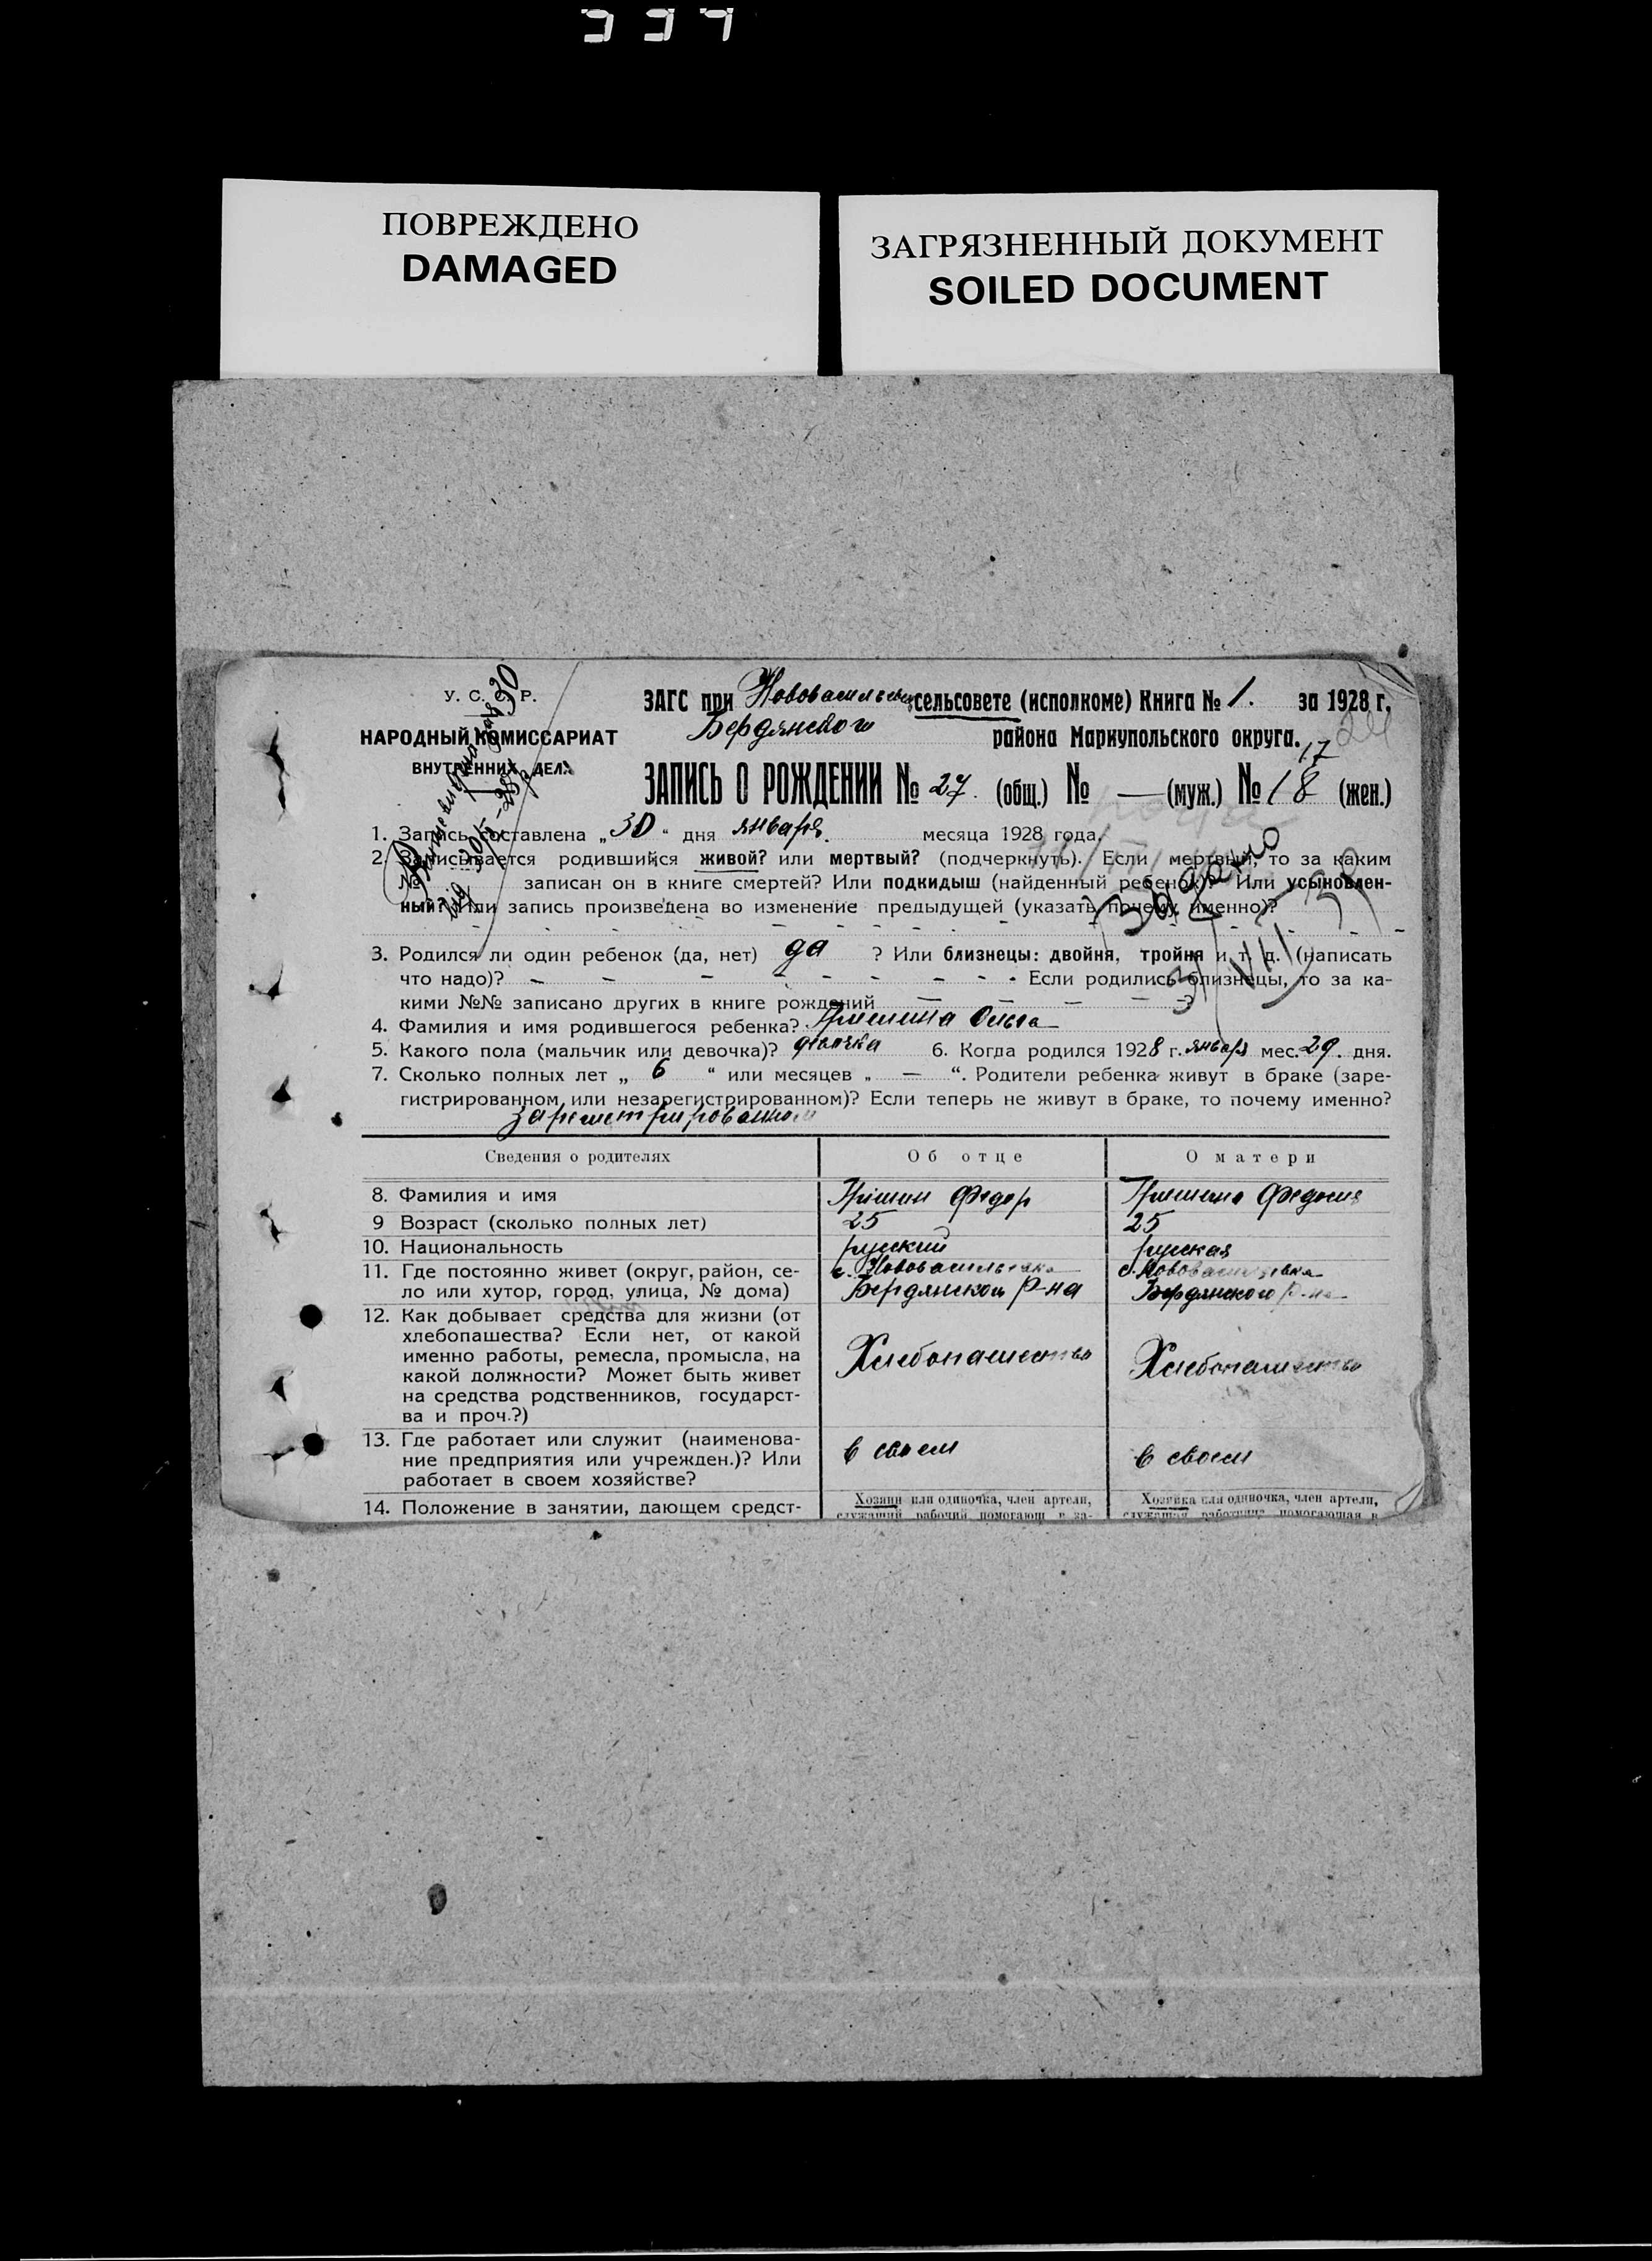 ПОВРЕЖДЕНО
DAMAGED
ЗАГРЯЗНЕННЫЙ ДОКУМЕНТ
SOILED DOCUMENT
У. С. С. Р.
НАРОДНЫЙ КОМИССАРИАТ
ВНУТРЕННИХ ДЕЛ
ЗАГС при Нововасильев сельсовете (исполкоме) Книга № 1. за 1928 г.
Бердянского района Мариупольского округа.
17
24
ЗАПИСЬ О РОЖДЕНИИ № 27. (общ.) № — (муж.) № 18 (жен.)
1. Запись составлена „30“ дня января. месяца 1928 года.
2. Записывается родившийся живой? или мертвый? (подчеркнуть). Если мертвый, то за каким
№ записан он в книге смертей? Или подкидыш (найденный ребенок)? Или усыновлен-
ный? Или запись произведена во изменение предыдущей (указать почему именно)?
Выдано
3. Родился ли один ребенок (да, нет) да ? Или близнецы: двойня, тройня и т. д. (написать
что надо)? — — — — - - - - - Если родились близнецы, то за ка-
кими №№ записано других в книге рождений — — — — ?
4. Фамилия и имя родившегося ребенка? Гришина Ольга
5. Какого пола (мальчик или девочка)? девочка 6. Когда родился 1928 г. января мес. 29. дня.
7. Сколько полных лет „ 6 “ или месяцев „ — “. Родители ребенка живут в браке (заре-
гистрированном или незарегистрированном)? Если теперь не живут в браке, то почему именно?
зарегистрированном
Сведения о родителях Об отце О матери
8. Фамилия и имя Гришин Федор Гришина Федосия
9 Возраст (сколько полных лет) 25 25
10. Национальность русский русская
11. Где постоянно живет (округ, район, се- с. Нововасильевка с. Нововасильевка
ло или хутор, город, улица, № дома) Бердянского Р-на Бердянского Р-на
12. Как добывает средства для жизни (от
хлебопашества? Если нет, от какой
именно работы, ремесла, промысла, на Хлебопашество Хлебопашество
какой должности? Может быть живет
на средства родственников, государст-
ва и проч.?)
13. Где работает или служит (наименова- в своем в своем
ние предприятия или учрежден.)? Или
работает в своем хозяйстве?
14. Положение в занятии, дающем средст- Хозяин или одиночка, член артели, Хозяйка или одиночка, член артели,
служащий рабочий помогающ в за- служащая работница помогающая в